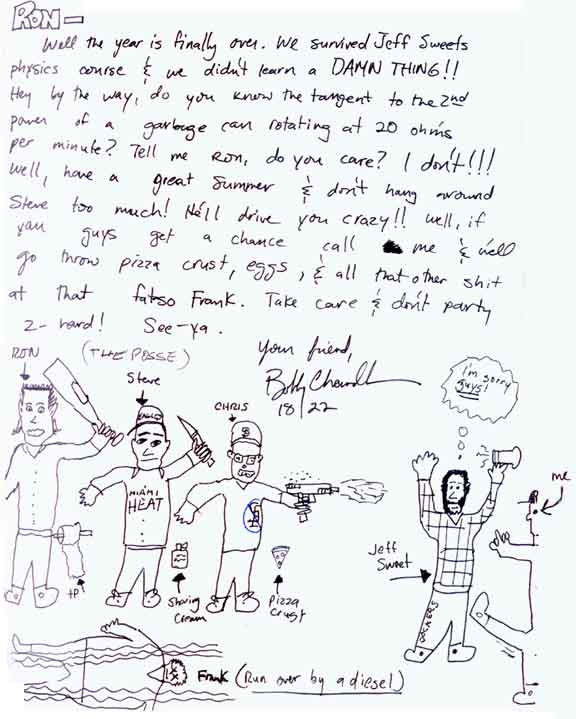 RON-
Well the year is finally over. We survived Jeff Sweets
physics course & we didn't learn a DAMN THING!!
Hey by the way, do you know the tangent to the 2nd
power of a garbage can rotating at 20 ohms
per minute? Tell me Ron, do you care? I don't!!!
Well, have a great Summer & don't hang around
Steve too much! He'll drive you crazy!! Well, if
you guys get a chance call me & we'll
go throw pizza crust, eggs, & all that other shit
at that fatso Frank. Take care & don't party
2-hard! See-ya.
Your friend,
Bobby
18/22
RON
(THE POSSE)
Steve
CHRIS
I'm sorry
guys!
EAGLES
MIAMI
HEAT
me
Jeff
Sweet
DOCKERS
TP
Shaving
Cream
Pizza
Crust
Frank (Run over by a diesel)